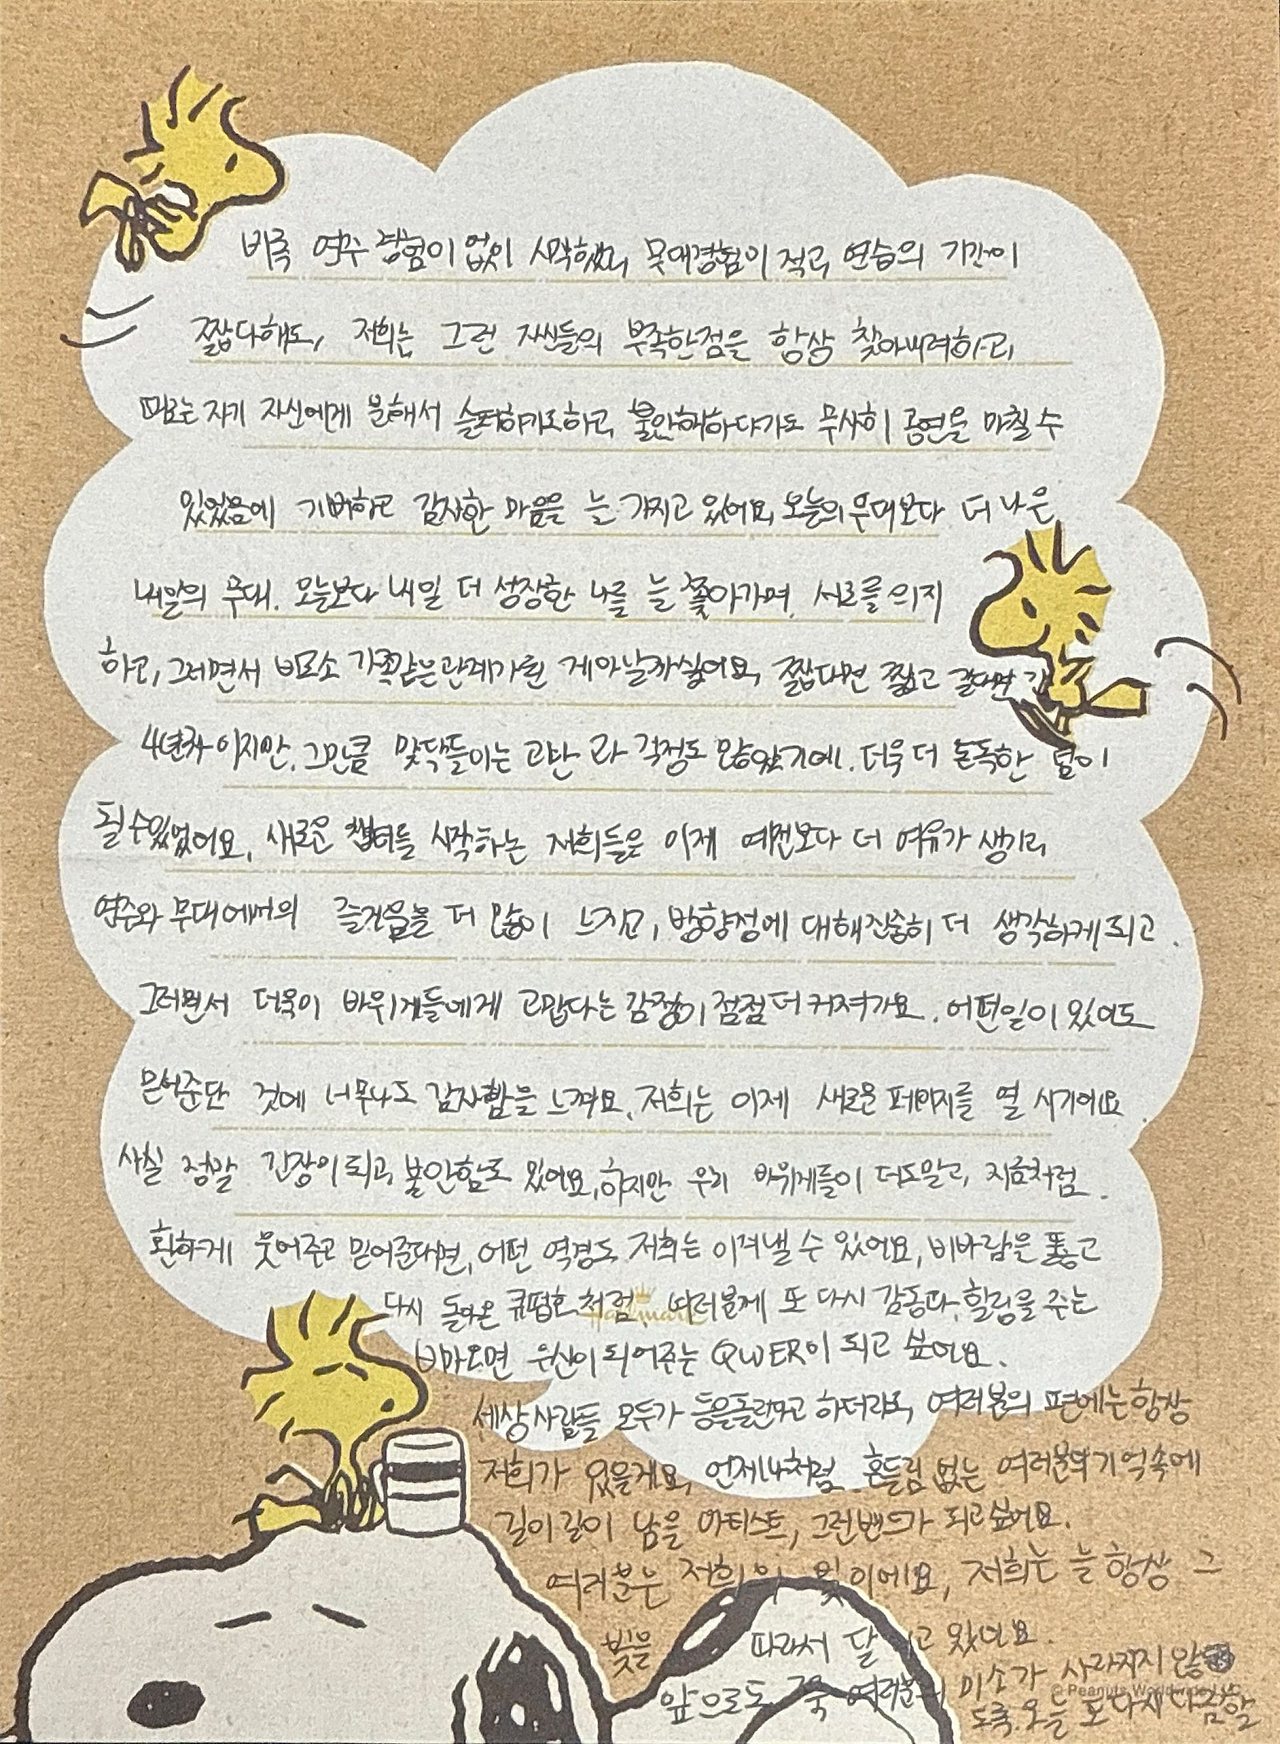 비록 연주 경험이 없이 시작했고, 무대경험이 적고, 연습의 기간이
짧다해도, 저희는 그런 자신들의 부족한점을 항상 찾아내려하고,
때로는 자기 자신에게 분해서 슬퍼하기도하고, 불안해하다가도 무사히 공연을 마칠 수
있었음에 기뻐하고 감사한 마음을 늘 가지고 있어요, 오늘의 무대보다 더 나은
내일의 무대. 오늘보다 내일 더 성장한 나를 늘 쫓아가며, 서로를 의지
하고, 그러면서 비로소 가족같은 관계가 된 게 아닐까싶어요, 짧다면 짧고 길다면 긴
4년차 이지만, 그만큼 맞닥들이는 고난 과 걱정도 많았기에. 더욱 더 돈독한 팀이
될 수있었어요, 새로운 챕터를 시작하는 저희들은 이제 예전보다 더 여유가 생기고
연주와 무대에서의 즐거움을 더 많이 느끼고, 방향성에 대해 진솔히 더 생각하게되고.
그러면서 더욱이 바위게들에게 고맙다는 감정이 점점 더 커져가요. 어떤일이 있어도
믿어준단 것에 너무나도 감사함을 느껴요, 저희는 이제 새로운 페이지를 열 시기에요.
사실 정말 긴장이 되고, 불안함도 있어요, 하지만 우리 바위게들이 더도말고, 지금처럼.
환하게 웃어주고 믿어준다면, 어떤 역경도 저희는 이겨낼 수 있어요, 비바람을 뚫고
다시 돌아온 큐떱호처럼, 여러분께 또 다시 감동과 힐링을 주는
Hallmark
비마오면 우산이 되어주는 QWER이 되고 싶어요.
세상사람들 모두가 등을돌린다고 하더라도, 여러분의 편에는 항상
저희가 있을게요, 언제나처럼. 흔들림 없는 여러분의 기억속에
길이길이 남을 아티스트, 그런밴드가 되고싶어요.
여러분은 저희의 빛이에요, 저희는 늘 항상 그
빛을 따라서 달 고 있어요.
앞으로도 쭉 여러분의 미소가 사라지지 않
도록. 오늘 또 다시 다짐할
© Peanuts Worldwide LLC